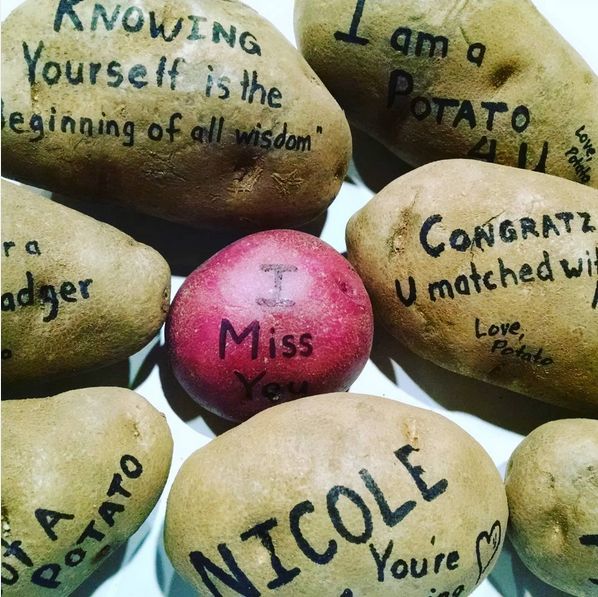 KNOWING
Yourself is the
Beginning of all wisdom"
I am a
POTATO
4 U
Love,
Potato
CONGRATZ
U matched
Love,
Potato
r a
adger
I
Miss
You
OF A
POTATO
NICOLE
You're